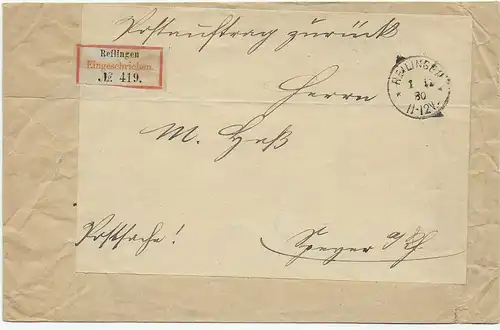 Postauftrag zurück
Reilingen
Eingeschrieben.
№ 419.
REILINGEN
1 12
80
11-12V.
Herrn
M. Heß
Postsache!
Speyer a/Rh